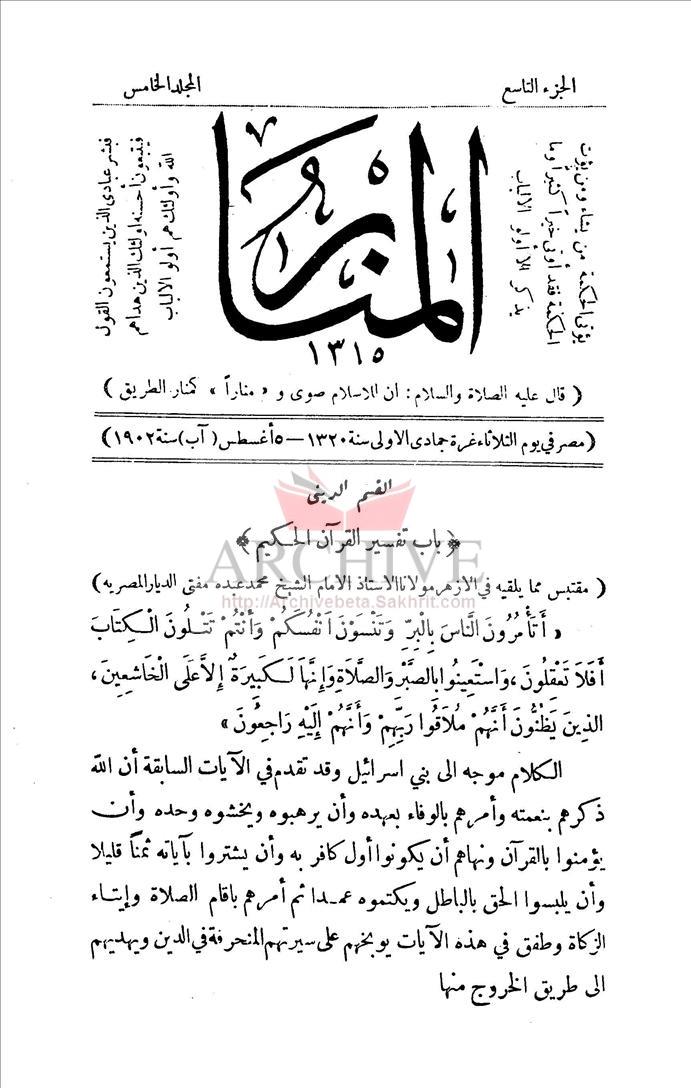 الجزء التاسع
المجلد الخامس
يؤتى الحكمة من يشاء ومن يؤت
الحكمة فقد أوتى خيراً كثيراً وما
يذكر الا أولو الالباب
المنار
١٣١٥
فبشر عبادى الذين يستمعون القول
فيتبعون أحسنه اولئك الذين هداهم
الله وأولئك هم أولو الالباب
( قال عليه الصلاة والسلام : ان للاسلام صوى و « مناراً » كمنار الطريق )
( مصر في يوم الثلاثاء غرة جمادى الاولى سنة ١٣٢٠ — ٥ أغسطس ( آب ) سنة ١٩٠٢ )
القسم الدينى
﴿ باب تفسير القرآن الحكيم ﴾
ARCHIVE
( مقتبس مما يلقيه في الازهر مولانا الاستاذ الامام الشيخ محمد عبده مفتى الديار المصريه )
http://Archivebeta.Sakhrit.com
« أَتَأْمُرُونَ النَّاسَ بِالْبِرِّ وَتَنْسَوْنَ أَنْفُسَكُمْ وَأَنْتُمْ تَتْلُونَ الْكِتَابَ
أَفَلاَ تَعْقِلُونَ ، وَاسْتَعِينُوا بِالصَّبْرِ وَالصَّلاَةِ وَإِنَّهَا لَكَبِيرَةٌ إِلاَّ عَلَى الْخَاشِعِينَ ،
الذِينَ يَظُنُّونَ أَنَّهُمْ مُلاَقُوا رَبِّهِمْ وَأَنَّهُمْ إِلَيْهِ رَاجِعُونَ »
الكلام موجه الى بني اسرائيل وقد تقدم في الآيات السابقة أن الله
ذكرهم بنعمته وأمرهم بالوفاء بعهده وأن يرهبوه ويخشوه وحده وأن
يؤمنوا بالقرآن ونهاهم أن يكونوا أول كافر به وأن يشتروا بآياته ثمناً قليلا
وأن يلبسوا الحق بالباطل ويكتموه عمدا ثم أمرهم باقام الصلاة وإيتاء
الزكاة وطفق في هذه الآيات يوبخهم على سيرتهم المنحرفة في الدين ويهديهم
الى طريق الخروج منها